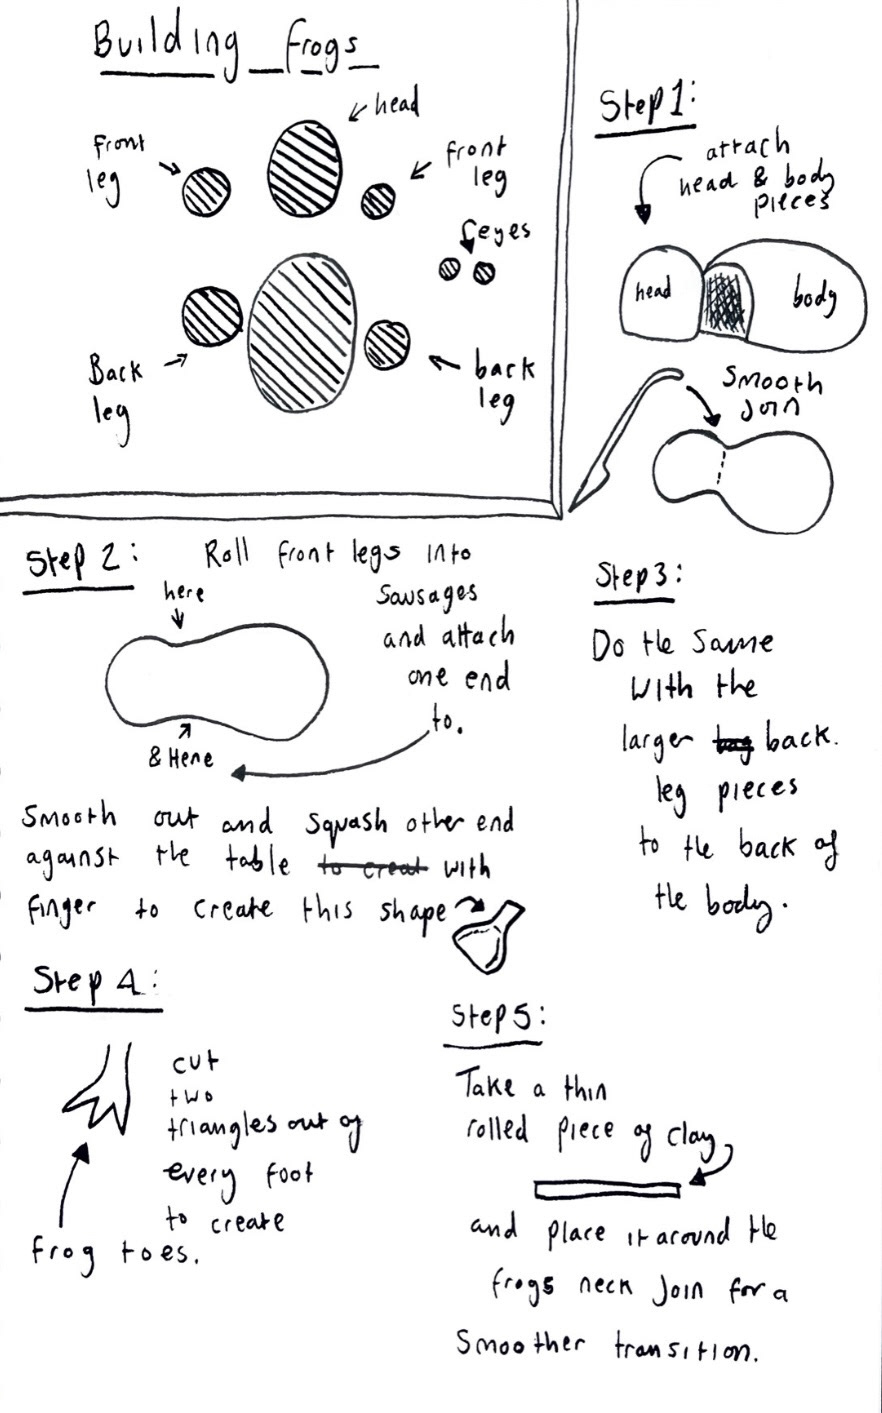 Building frogs
head
front
leg
front
leg
eyes
Back
leg
back
leg
Step 1:
attach
head & body
pieces
head
body
Smooth
join
Step 2: Roll front legs into
Sausages
and attach
one end
to.
here
& Here
Smooth out and squash other end
against the table to creat with
finger to create this shape
Step 3:
Do the same
With the
larger leg back.
leg pieces
to the back of
the body.
Step 4:
cut
two
triangles out of
every foot
to create
frog toes.
Step 5:
Take a thin
rolled piece of clay,
and place it around the
frogs neck join for a
Smoother transition.